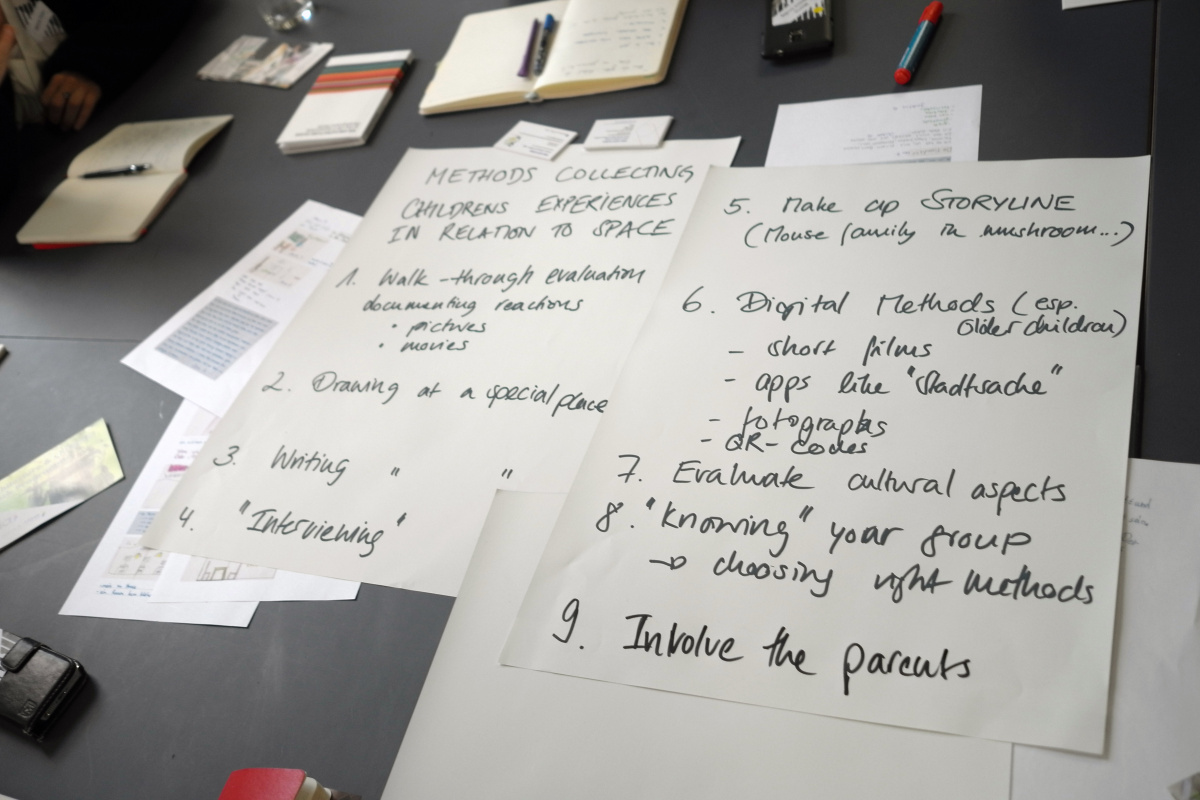 METHODS COLLECTING
CHILDRENS EXPERIENCES
IN RELATION TO SPACE
1. Walk-through evaluation
documenting reactions
• pictures
• movies
2. Drawing at a special place
3. Writing " "
4. "Interviewing"
5. Make up STORYLINE
(Mouse family in mushroom...)
6. Digital Methods (esp.
older children)
- short films
- apps like "Stadtsache"
- fotographs
- QR-codes
7. Evaluate cultural aspects
8. "Knowing" your group
→ choosing right methods
9. Involve the parents